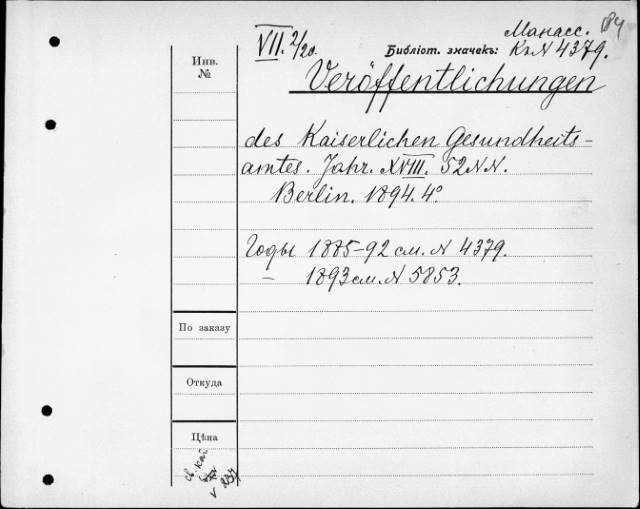 Манасс. 184
VII. 2/20. Библіот. значекъ: К№ 4379.
Инв.
№
Veröffentlichungen
des Kaiserlichen Gesundheits-
amtes. Jahr. XVIII. 52 NN.
Berlin. 1894. 4°.
Годы 1885-92 см. N 4379.
– 1893 см. N 5853.
По заказу
Откуда
Цѣна